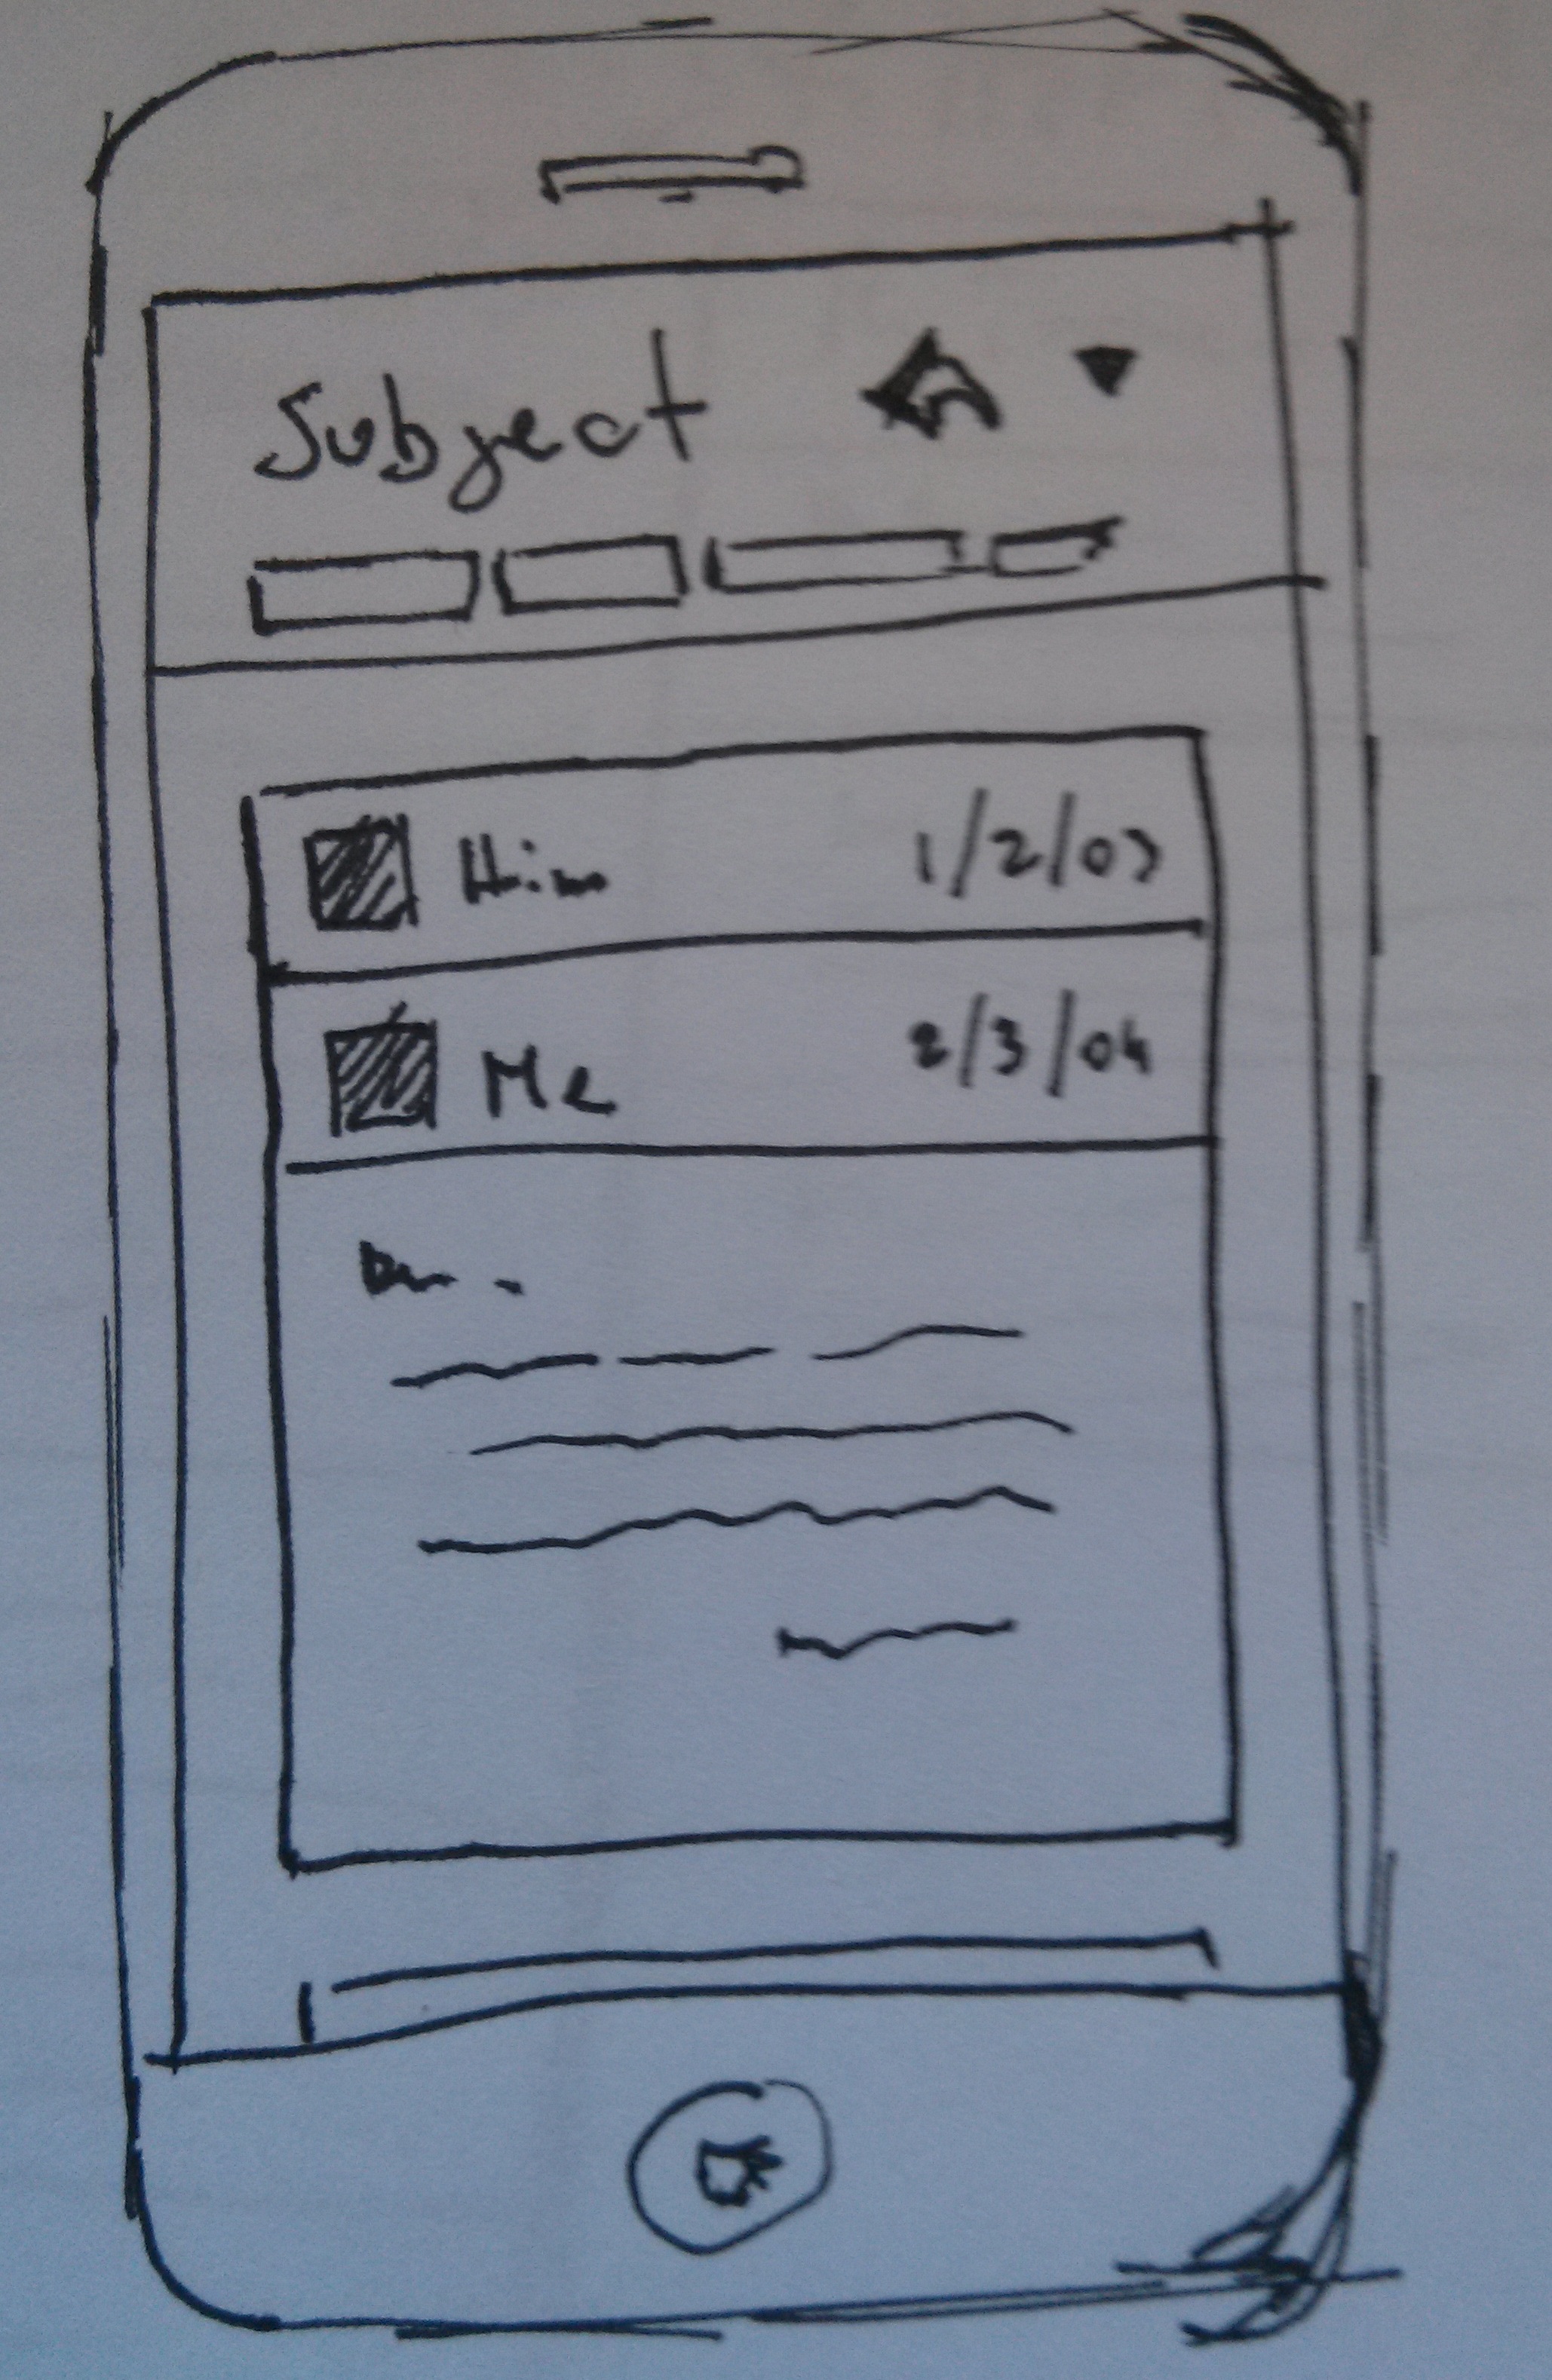 Subject
Him 1/2/03
Me 2/3/04